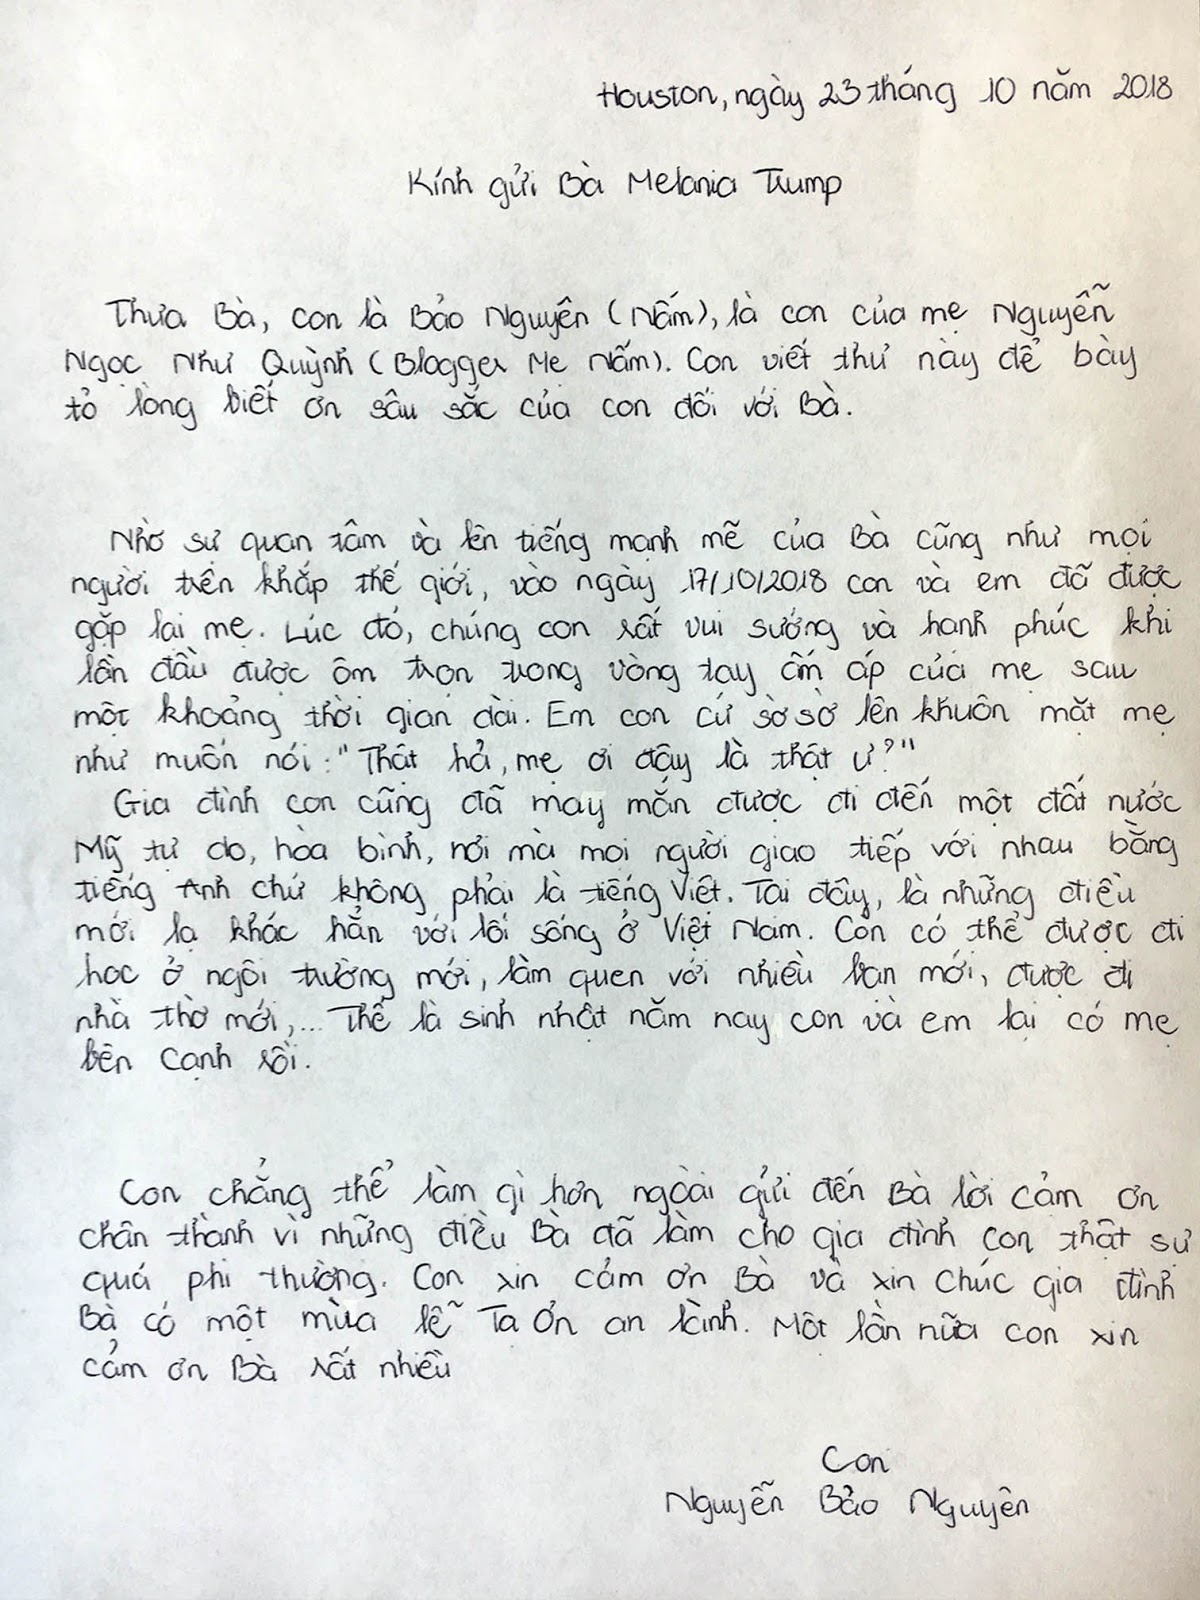 Houston, ngày 23 tháng 10 năm 2018
Kính gửi Bà Melania Trump
Thưa Bà, con là Bảo Nguyên (Nấm), là con của mẹ Nguyễn
Ngọc Như Quỳnh (Blogger Mẹ Nấm). Con viết thư này để bày
tỏ lòng biết ơn sâu sắc của con đối với Bà.
Nhờ sự quan tâm và lên tiếng mạnh mẽ của Bà cũng như mọi
người trên khắp thế giới, vào ngày 17/10/2018 con và em đã được
gặp lại mẹ. Lúc đó, chúng con rất vui sướng và hạnh phúc khi
lần đầu được ôm trọn trong vòng tay ấm áp của mẹ sau
một khoảng thời gian dài. Em con cứ sờ sờ lên khuôn mặt mẹ
như muốn nói: "Thật hả, mẹ ơi đây là thật ư?"
Gia đình con cũng đã may mắn được đi đến một đất nước
Mỹ tự do, hòa bình, nơi mà mọi người giao tiếp với nhau bằng
tiếng Anh chứ không phải là tiếng Việt. Tại đây, là những điều
mới lạ khác hẳn với lối sống ở Việt Nam. Con có thể được đi
học ở ngôi trường mới, làm quen với nhiều bạn mới, được đi
nhà thờ mới,... Thế là sinh nhật năm nay con và em lại có mẹ
bên cạnh rồi.
Con chẳng thể làm gì hơn ngoài gửi đến Bà lời cảm ơn
chân thành vì những điều Bà đã làm cho gia đình con thật sự
quá phi thường. Con xin cảm ơn Bà và xin chúc gia đình
Bà có một mùa lễ Tạ Ơn an lành. Một lần nữa con xin
cảm ơn Bà rất nhiều
Con
Nguyễn Bảo Nguyên